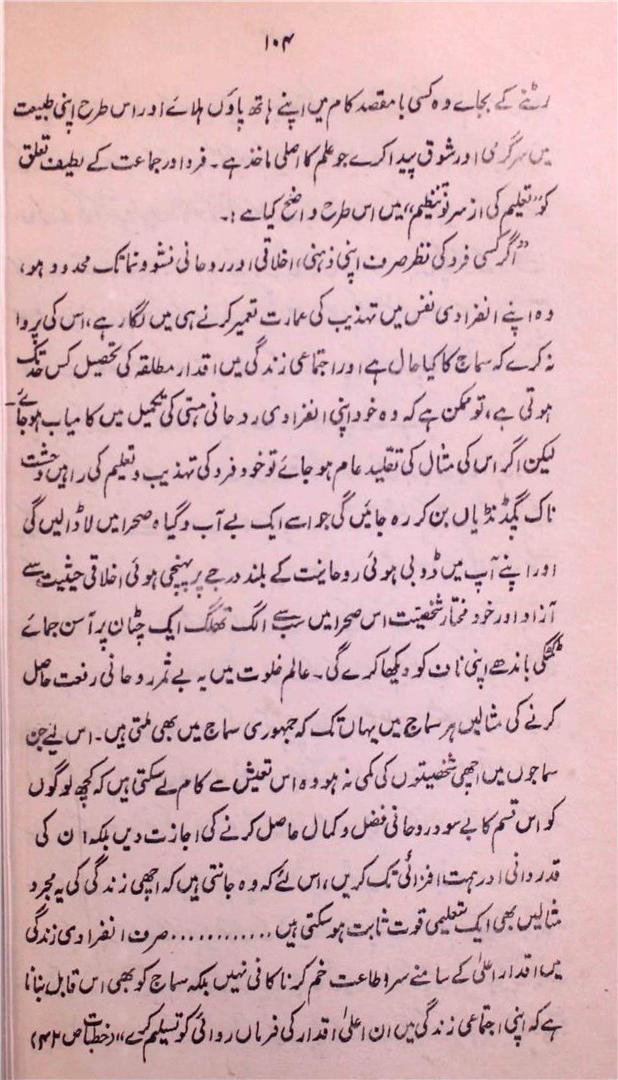 ۱۰۴
رٹنے کے بجائے وہ کسی بامقصد کام میں اپنے ہاتھ پاؤں ہلائے اور اس طرح اپنی طبیعت
میں سرگرمی اور شوق پیدا کرے جو علم کا اصلی ماخذ ہے۔ فرد اور جماعت کے لطیف تعلق
کو ’’تعلیم کی از سر نو تنظیم‘‘ میں اس طرح واضح کیا ہے:۔
’’اگر کسی فرد کی نظر صرف اپنی ذہنی، اخلاقی اور روحانی نشوونما تک محدود ہو،
وہ اپنے انفرادی نفس میں تہذیب کی عمارت تعمیر کرنے ہی میں لگا رہے، اس کی پروا
نہ کرے کہ سماج کا کیا حال ہے اور اجتماعی زندگی میں اقدار مطلقہ کی تحصیل کس حد تک
ہوتی ہے، تو ممکن ہے کہ وہ خود اپنی انفرادی روحانی ہستی کی تکمیل میں کامیاب ہو جائے۔
لیکن اگر اس کی مثال کی تقلید عام ہو جائے تو خود فرد کی تہذیب و تعلیم کی راہیں وحشت
ناک پگڈنڈیاں بن کر رہ جائیں گی جو اسے ایک بے آب و گیاہ صحرا میں لا ڈالیں گی
اور اپنے آپ میں ڈوبی ہوئی روحانیت کے بلند درجے پر پہنچی ہوئی اخلاقی حیثیت سے
آزاد اور خود مختار شخصیت اس صحرا میں سب سے الگ تھلگ ایک چٹان پر آسن جمائے
ٹکٹکی باندھے اپنی ناف کو دیکھا کرے گی۔ عالم خلوت میں یہ بے ثمر روحانی رفعت حاصل
کرنے کی مثالیں ہر سماج میں یہاں تک کہ جمہوری سماج میں بھی ملتی ہیں۔ اس لئے جن
سماجوں میں اچھی شخصیتوں کی کمی نہ ہو وہ اس تعیش سے کام لے سکتی ہیں کہ کچھ لوگوں
کو اس قسم کا بے سود روحانی فضل و کمال حاصل کرنے کی اجازت دیں بلکہ ان کی
قدردانی اور ہمت افزائی تک کریں، اس لئے کہ وہ جانتی ہیں کہ اچھی زندگی کی یہ مجرد
مثالیں بھی ایک تعلیمی قوت ثابت ہو سکتی ہیں ............ صرف انفرادی زندگی
میں اقدار اعلیٰ کے سامنے سر و طاعت خم کرنا کافی نہیں بلکہ سماج کو بھی اس قابل بنانا
ہے کہ اپنی اجتماعی زندگی میں ان اعلیٰ اقدار کی فرماں روائی کو تسلیم کرے‘‘ (خطبات ص ۴۲)